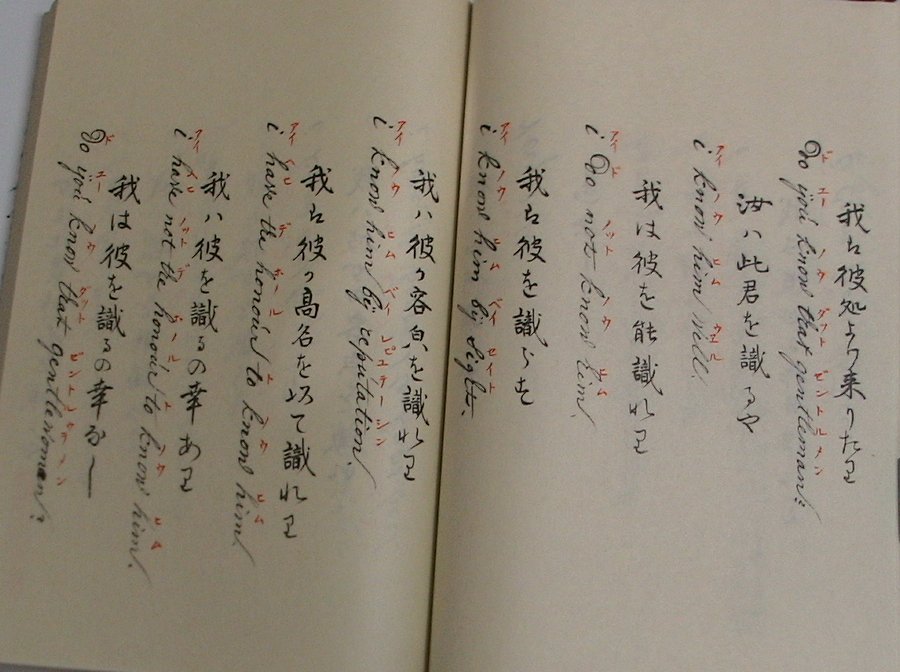 我は彼処より来りたり
ド ユー ノウ ダット ゼントルメン
do you know that gentleman?
汝ハ此君を識るや
アイ ノウ ヒム ウエル
i know him well.
我は彼を能識れり
アイ ド ノット ノウ ヒム
i do not know him.
我は彼を識らす
アイ ノウ ヒム バイ セイト
i know him by sight.
我ハ彼カ容皃を識れり
アイ ノウ ヒム バイ レピュテーシン
i know him by reputation.
我は彼カ高名を以て識れり
アイ ト ノウ ヒム
i have the honour to know him
我ハ彼を識るの幸あり
アイ ノット ト ノウ ヒム
i have not the honour to know him.
我は彼を識るの幸なし
ド ユー ノウ ダット
do you know that gentlewoman?